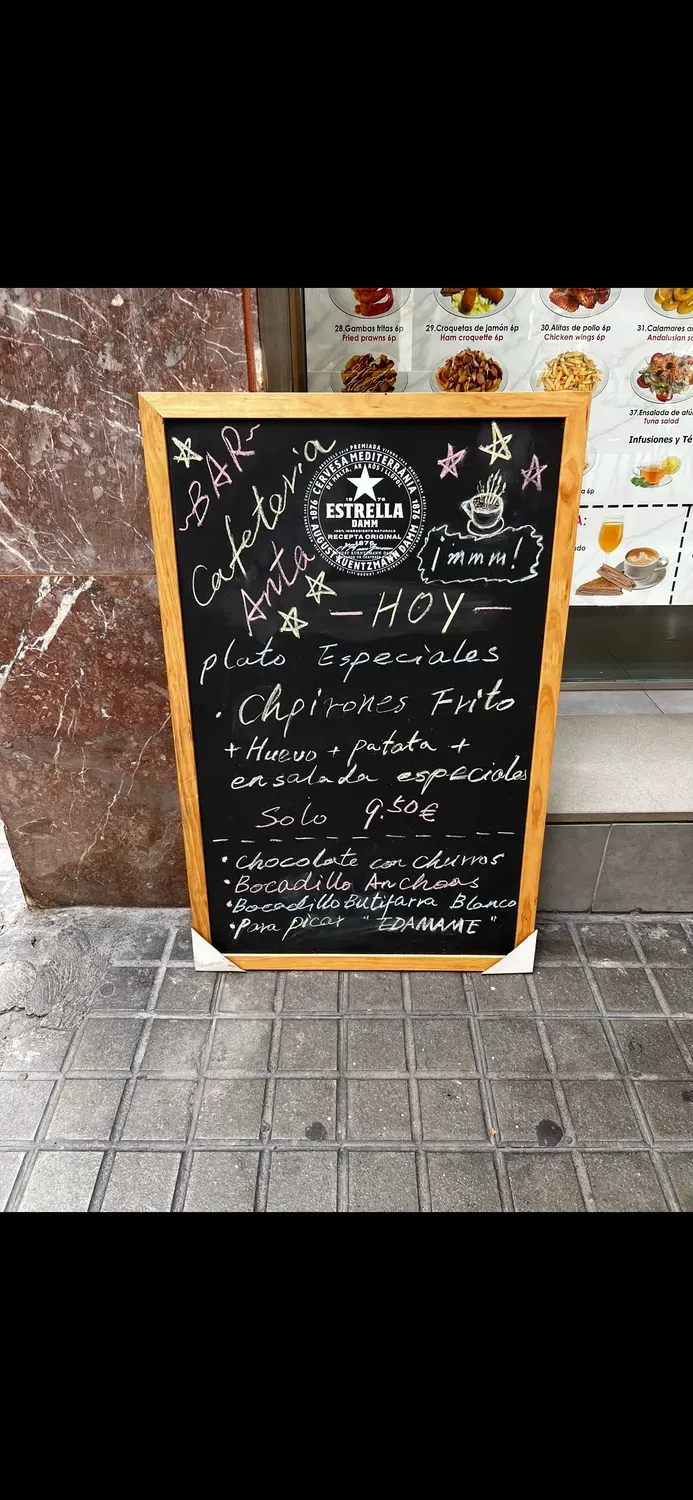 ~BAR~
Cafeteria
Anta
PREMIADA
CERVESA MEDITERRÀNIA
DE MALTA, ARRÒS I LLÚPOL
1876
1876
ESTRELLA
DAMM
100% INGREDIENTS NATURALS
RECEPTA ORIGINAL
1876
AUGUST KUENTZMANN DAMM
¡mmm!
— HOY —
plato Especiales
· Chpirones Frito
+ Huevo + patata +
ensalada especiales
Solo 9.50€
· chocolate con churros
· Bocadillo Anchoas
· Bocadillo Butifarra Blanco
· Para picar "EDAMAME"
28.Gambas fritas 6p
Fried prawns 6p
29.Croquetas de jamón 6p
Ham croquette 6p
30.Alitas de pollo 6p
Chicken wings 6p
31.Calamares a
Andalusian s
37.Ensalada de atú
Tuna salad
Infusiones y Té
6p
A: